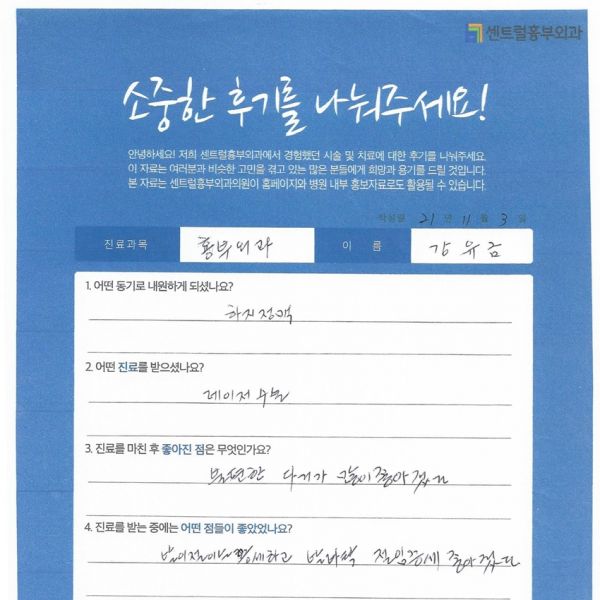 센트럴흉부외과
소중한 후기를 나눠주세요!
안녕하세요! 저희 센트럴흉부외과에서 경험했던 시술 및 치료에 대한 후기를 나눠주세요.
이 자료는 여러분과 비슷한 고민을 겪고 있는 많은 분들에게 희망과 용기를 드릴 것입니다.
본 자료는 센트럴흉부외과의원이 홈페이지와 병원 내부 홍보자료로도 활용될 수 있습니다.
작성일 21 년 11 월 3 일
진료과목 흉부외과 이 름 강유금
1. 어떤 동기로 내원하게 되셨나요?
하지정맥
2. 어떤 진료를 받으셨나요?
레이저 수술
3. 진료를 마친 후 좋아진 점은 무엇인가요?
불편한 다리가 많이 좋아졌다
4. 진료를 받는 중에는 어떤 점들이 좋았었나요?
발바닥 좋아졌다